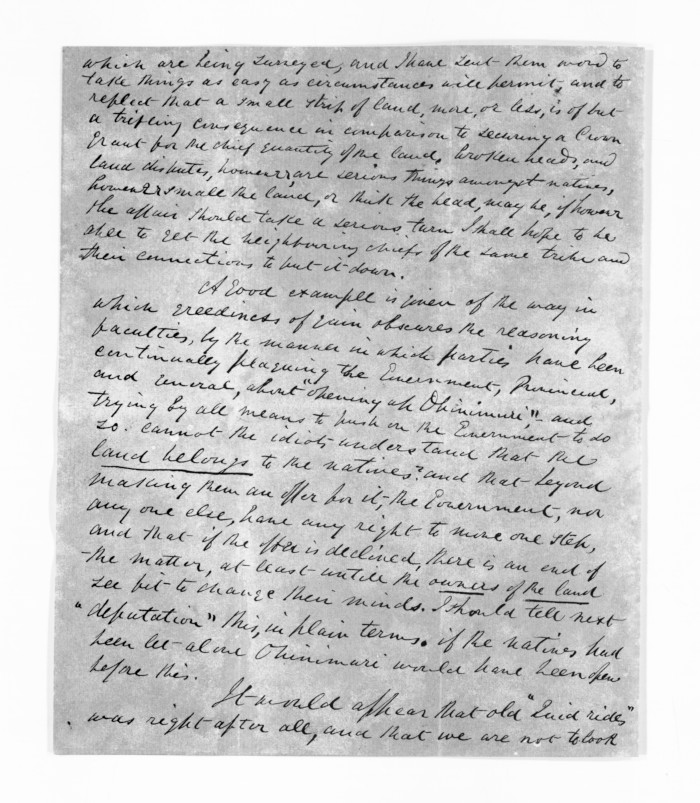 which are being surveyed, and I have sent them word to
take things as easy as circumstances will permit, and to
reflect that a small strip of land, more, or less, is of but
a trifling consequence in comparison to securing a Crown
Grant for the chief quantity of the land, broken heads, and
land disputes, however, are serious things amongst natives,
however small the land, or thick the head, may be, if however
the affair should take a serious turn I shall hope to be
able to get the neighbouring chiefs of the same tribe and
their connections to put it down.
A good example is given of the way in
which greediness of gain obscures the reasoning
faculties, by the manner in which parties have been
continually plaguing the Government, Provincial,
and General, about "opening up Ohinimuri," - and
trying by all means to push on the Government to do
so. cannot the idiots understand that the
land belongs to the natives? and that beyond
making them an offer for it, the Government, nor
any one else, have any right to move one step,
and that if the offer is declined, there is an end of
the matter, at least untill the owners of the land
see fit to change their minds. I should tell next
"deputation" this, in plain terms. if the natives had
been let alone Ohinimuri would have been open
before this.
It would appear that old "Quid rides"
was right after all, and that we are not to look